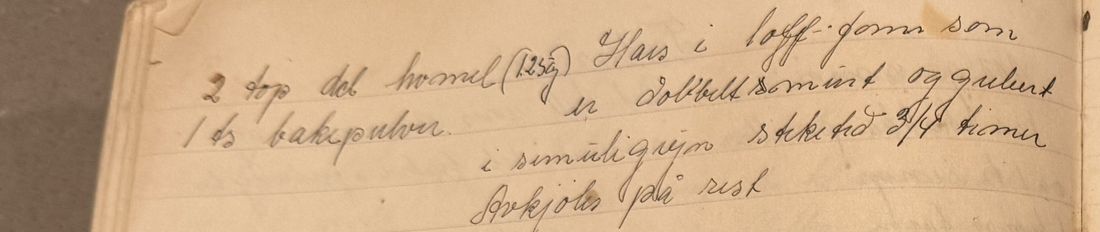 2 top dcl hvmel (125g) Haes i loff-form som
1 ts bakepulver. er dobbelt smurt og gubert
i semuligrejn steketid 3/4 timer
Avkjøles på rist